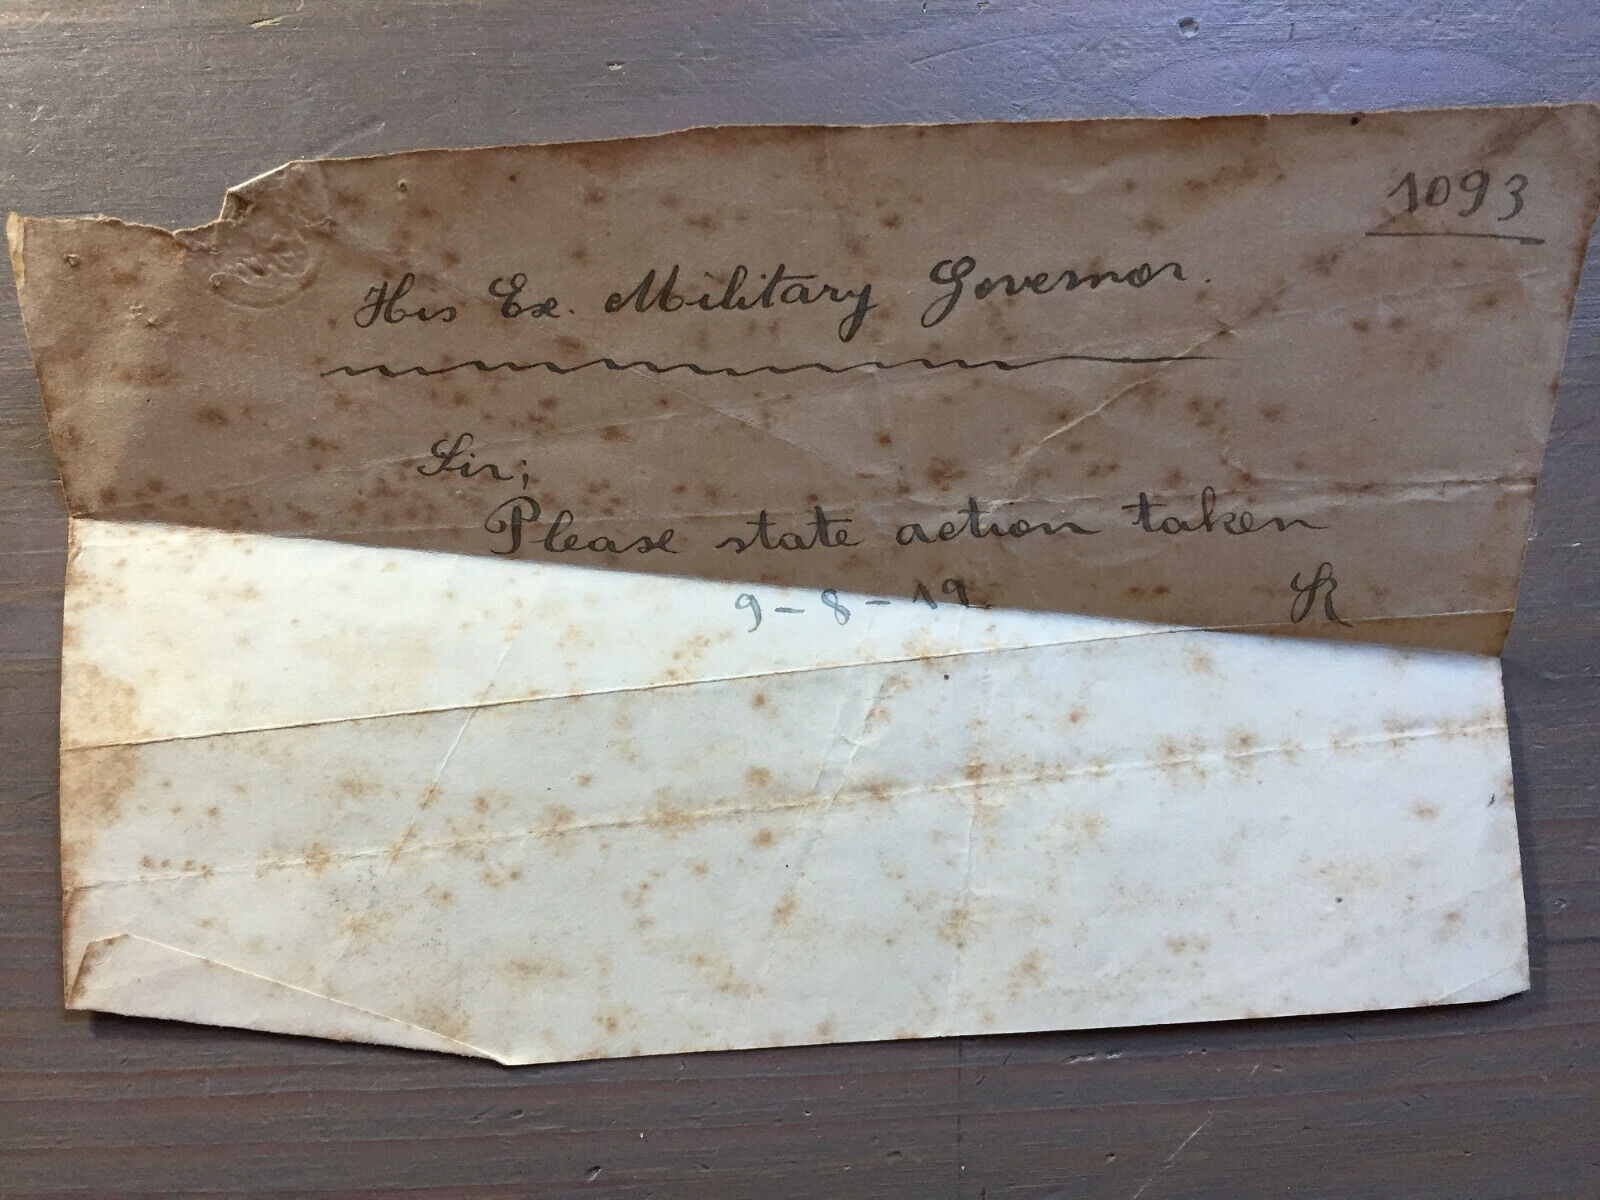 1093
His Ex. Military Governor.
Sir;
Please state action taken
9-8-19
R